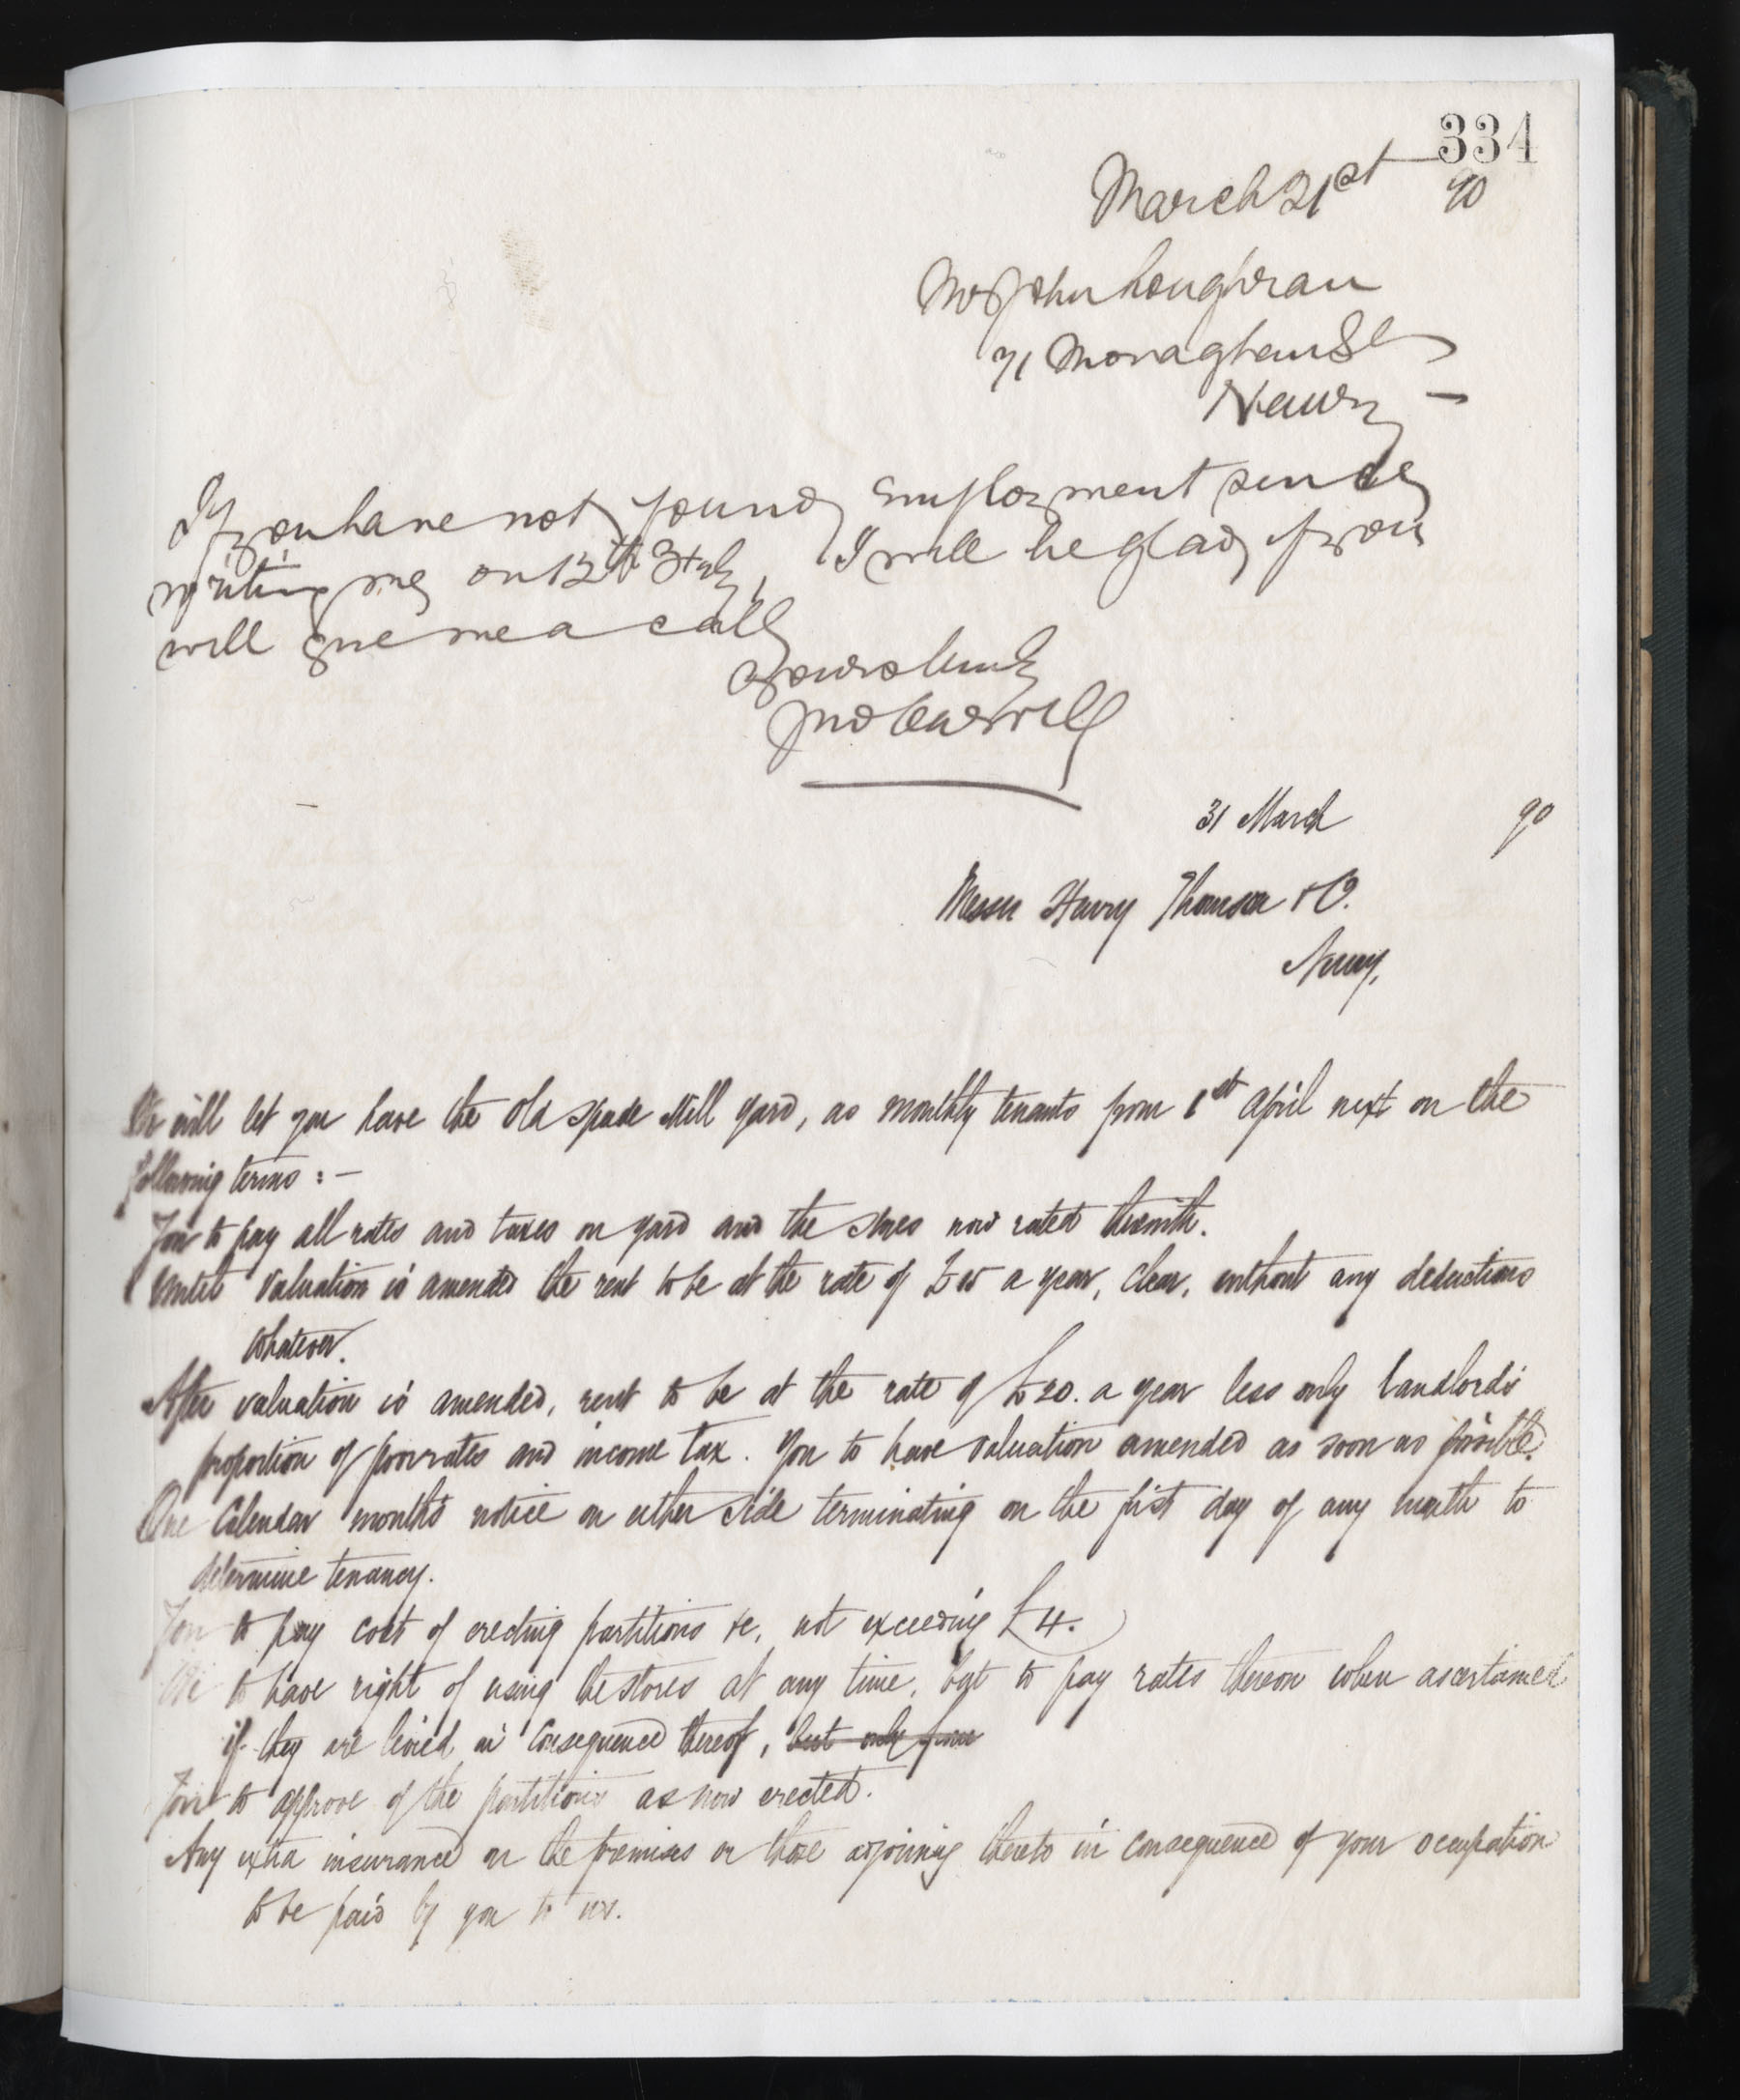 334
March 21st 90
Mr John Loughran
71 Monaghan St
Newry
If you have not found employment since
writing me on 12th Feby, I will be glad if you
will give me a call
Yours truly
Jno Carvill
31 March 90
Messrs Henry Thomson & Co.
Newry,
We will let you have the old Spade Mill yard, as monthly tenants from 1st April next on the
following terms :—
You to pay all rates and taxes on yard and the stores now rated therewith.
Until valuation is amended the rent to be at the rate of £ a year, clear, without any deductions
whatever.
After valuation is amended, rent to be at the rate of £20. a year less only landlord's
proportion of poor rates and income tax. You to have valuation amended as soon as possible.
One Calendar month's notice on either side terminating on the first day of any month to
determine tenancy.
You to pay cost of erecting partitions &c, not exceeding £4.
We to have right of using the stores at any time, but to pay rates thereon when ascertained
if they are levied in consequence thereof, but only from
You to approve of the partitions as now erected.
Any extra insurance on the premises or those adjoining thereto in consequence of your occupation
to be paid by you to us.